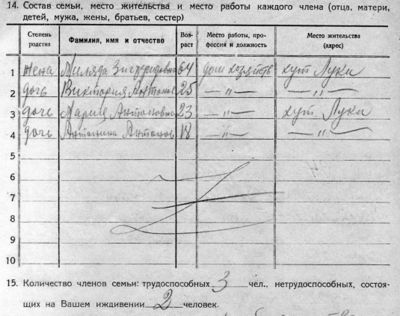 14. Состав семьи, место жительства и место работы каждого члена (отца, матери,
детей, мужа, жены, братьев, сестер)
Степень родства Фамилия, имя и отчество Возраст Место работы, профессия и должность Место жительства (адрес)
1 жена Миляда 64 дом. хут. Луки
2 дочь Виктория Антонов 25 —„— —„—
3 дочь Мария Антоновна 23 хут. Луки
4 дочь Антонина Антонов 18 —„— —„—
5
6
7
8
9
10
15. Количество членов семьи: трудоспособных 3 чел., нетрудоспособных, состоя-
щих на Вашем иждивении 2 человек.